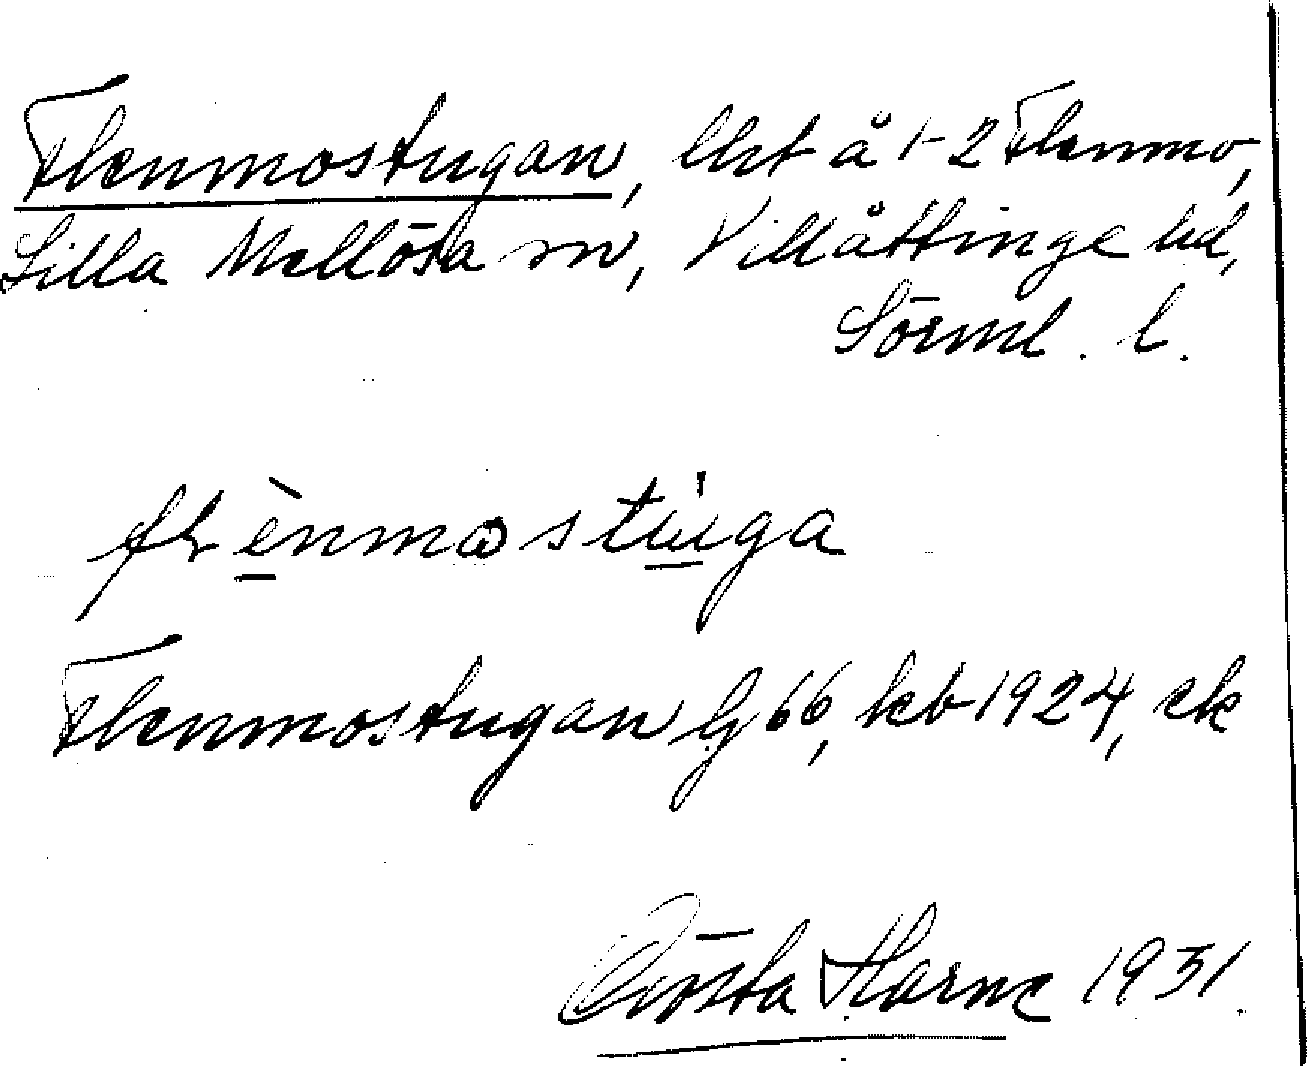 Flenmostugan, lht å 1-2 Flenmo,
Lilla Mellösa sn, Villåttinge hd,
Sörml. l.
flènmostúga
Flenmostugan lg 66, kb 1924, ek
Gösta Horne 1931.